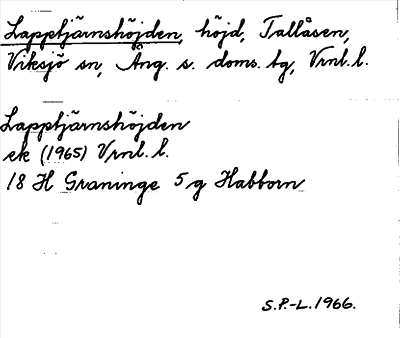 Lapptjärnshöjden, höjd, Tallåsen,
Viksjö sn, Ång. s. doms. tg, Vrnl. l.
Lapptjärnshöjden
ek (1965) Vrnl. l.
18 H Graninge 5 g Habborn
S.P.-L. 1966.